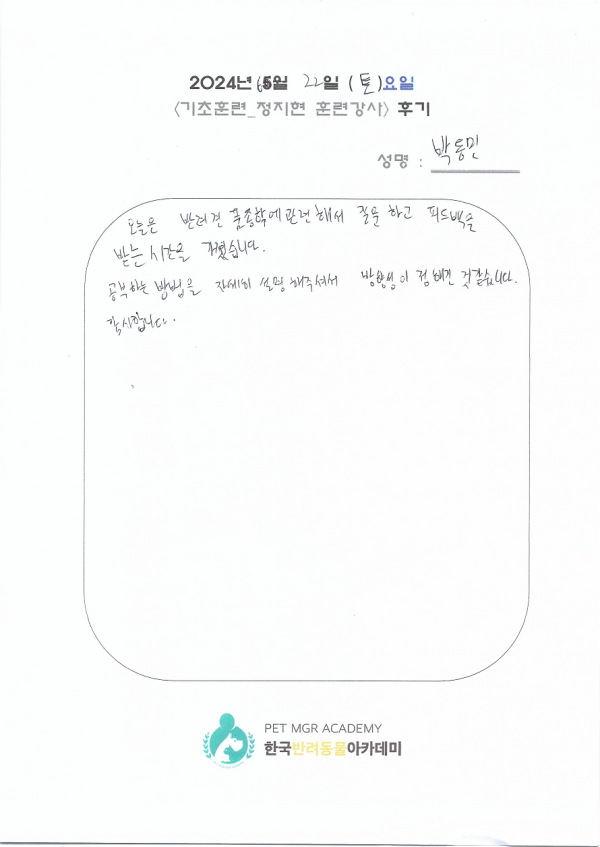 2024년 6월 22일 (토)요일
<기초훈련_정지현 훈련강사> 후기
성명 : 박동민
오늘은 반려견 품종학에 관련해서 질문 하고 피드백을
받는 시간을 가졌습니다.
공부하는 방법을 자세히 설명해주셔서 방향성이 정해진 것같습니다.
감사합니다.
PET MGR ACADEMY
한국반려동물아카데미